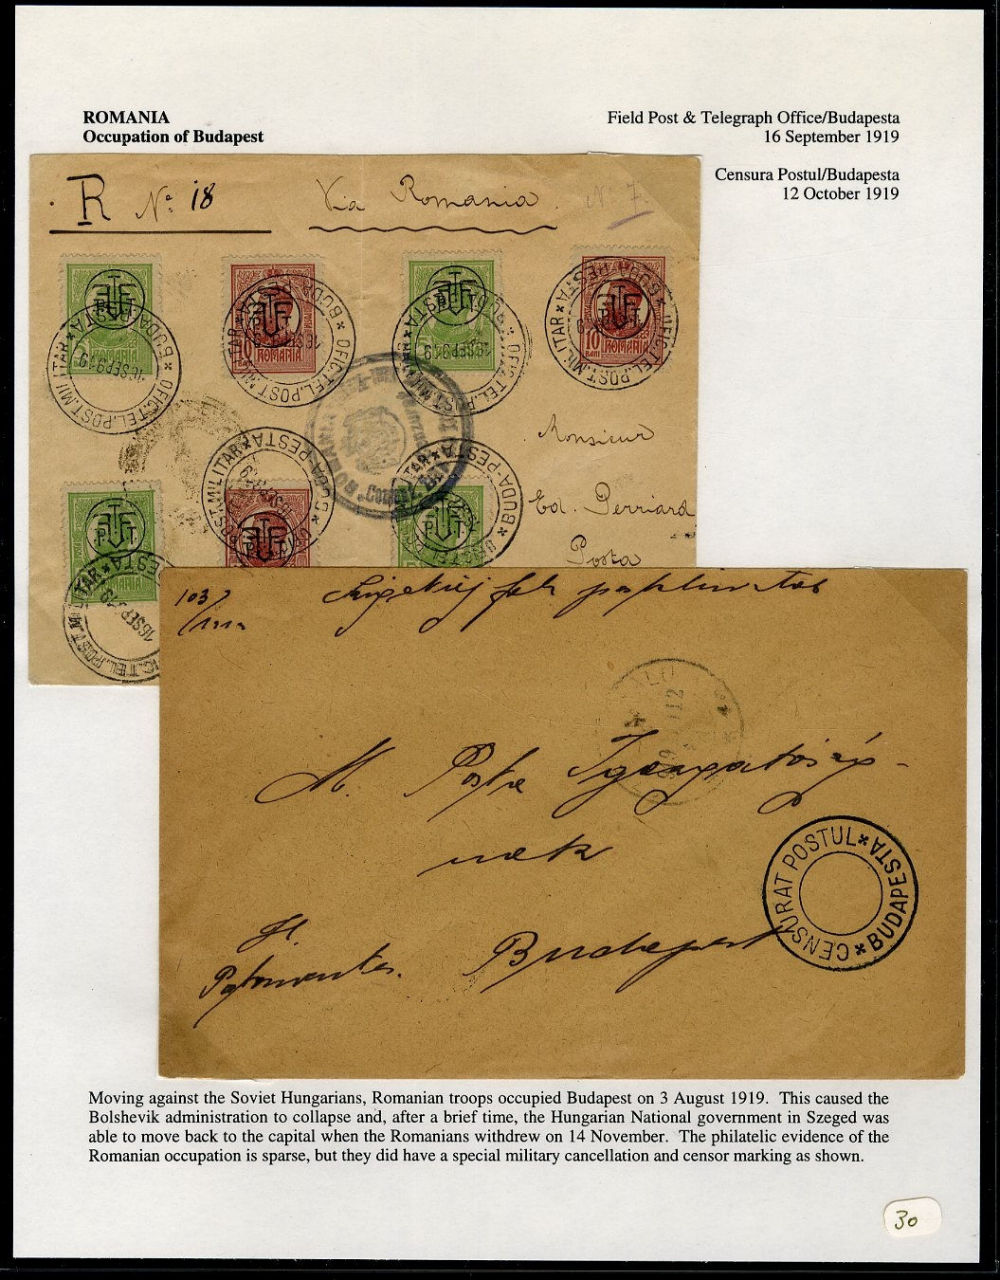 ROMANIA
Occupation of Budapest
Field Post & Telegraph Office/Budapesta
16 September 1919
Censura Postul/Budapesta
12 October 1919
R Nº 18
Via Romania.
Nº 7.
OFIC.TEL.POST.MILITAR * BUDA-PESTA *
16 SEP 919
OFIC.TEL.POST.MILITAR * BUDA-PESTA *
16 SEP 919
OFIC.TEL.POST.MILITAR * BUDA-PESTA *
16 SEP 919
OFIC.TEL.POST.MILITAR * BUDA-PESTA *
10 BANI ROMANIA
10 ROMANIA
Monsieur
Ed. Perriard
Posta
BUDA-PESTA
16 SEP 919
103
M. Posta Igazgatóság-
nak
Budapest
CENSURAT POSTUL * BUDAPESTA *
Moving against the Soviet Hungarians, Romanian troops occupied Budapest on 3 August 1919. This caused the
Bolshevik administration to collapse and, after a brief time, the Hungarian National government in Szeged was
able to move back to the capital when the Romanians withdrew on 14 November. The philatelic evidence of the
Romanian occupation is sparse, but they did have a special military cancellation and censor marking as shown.
30